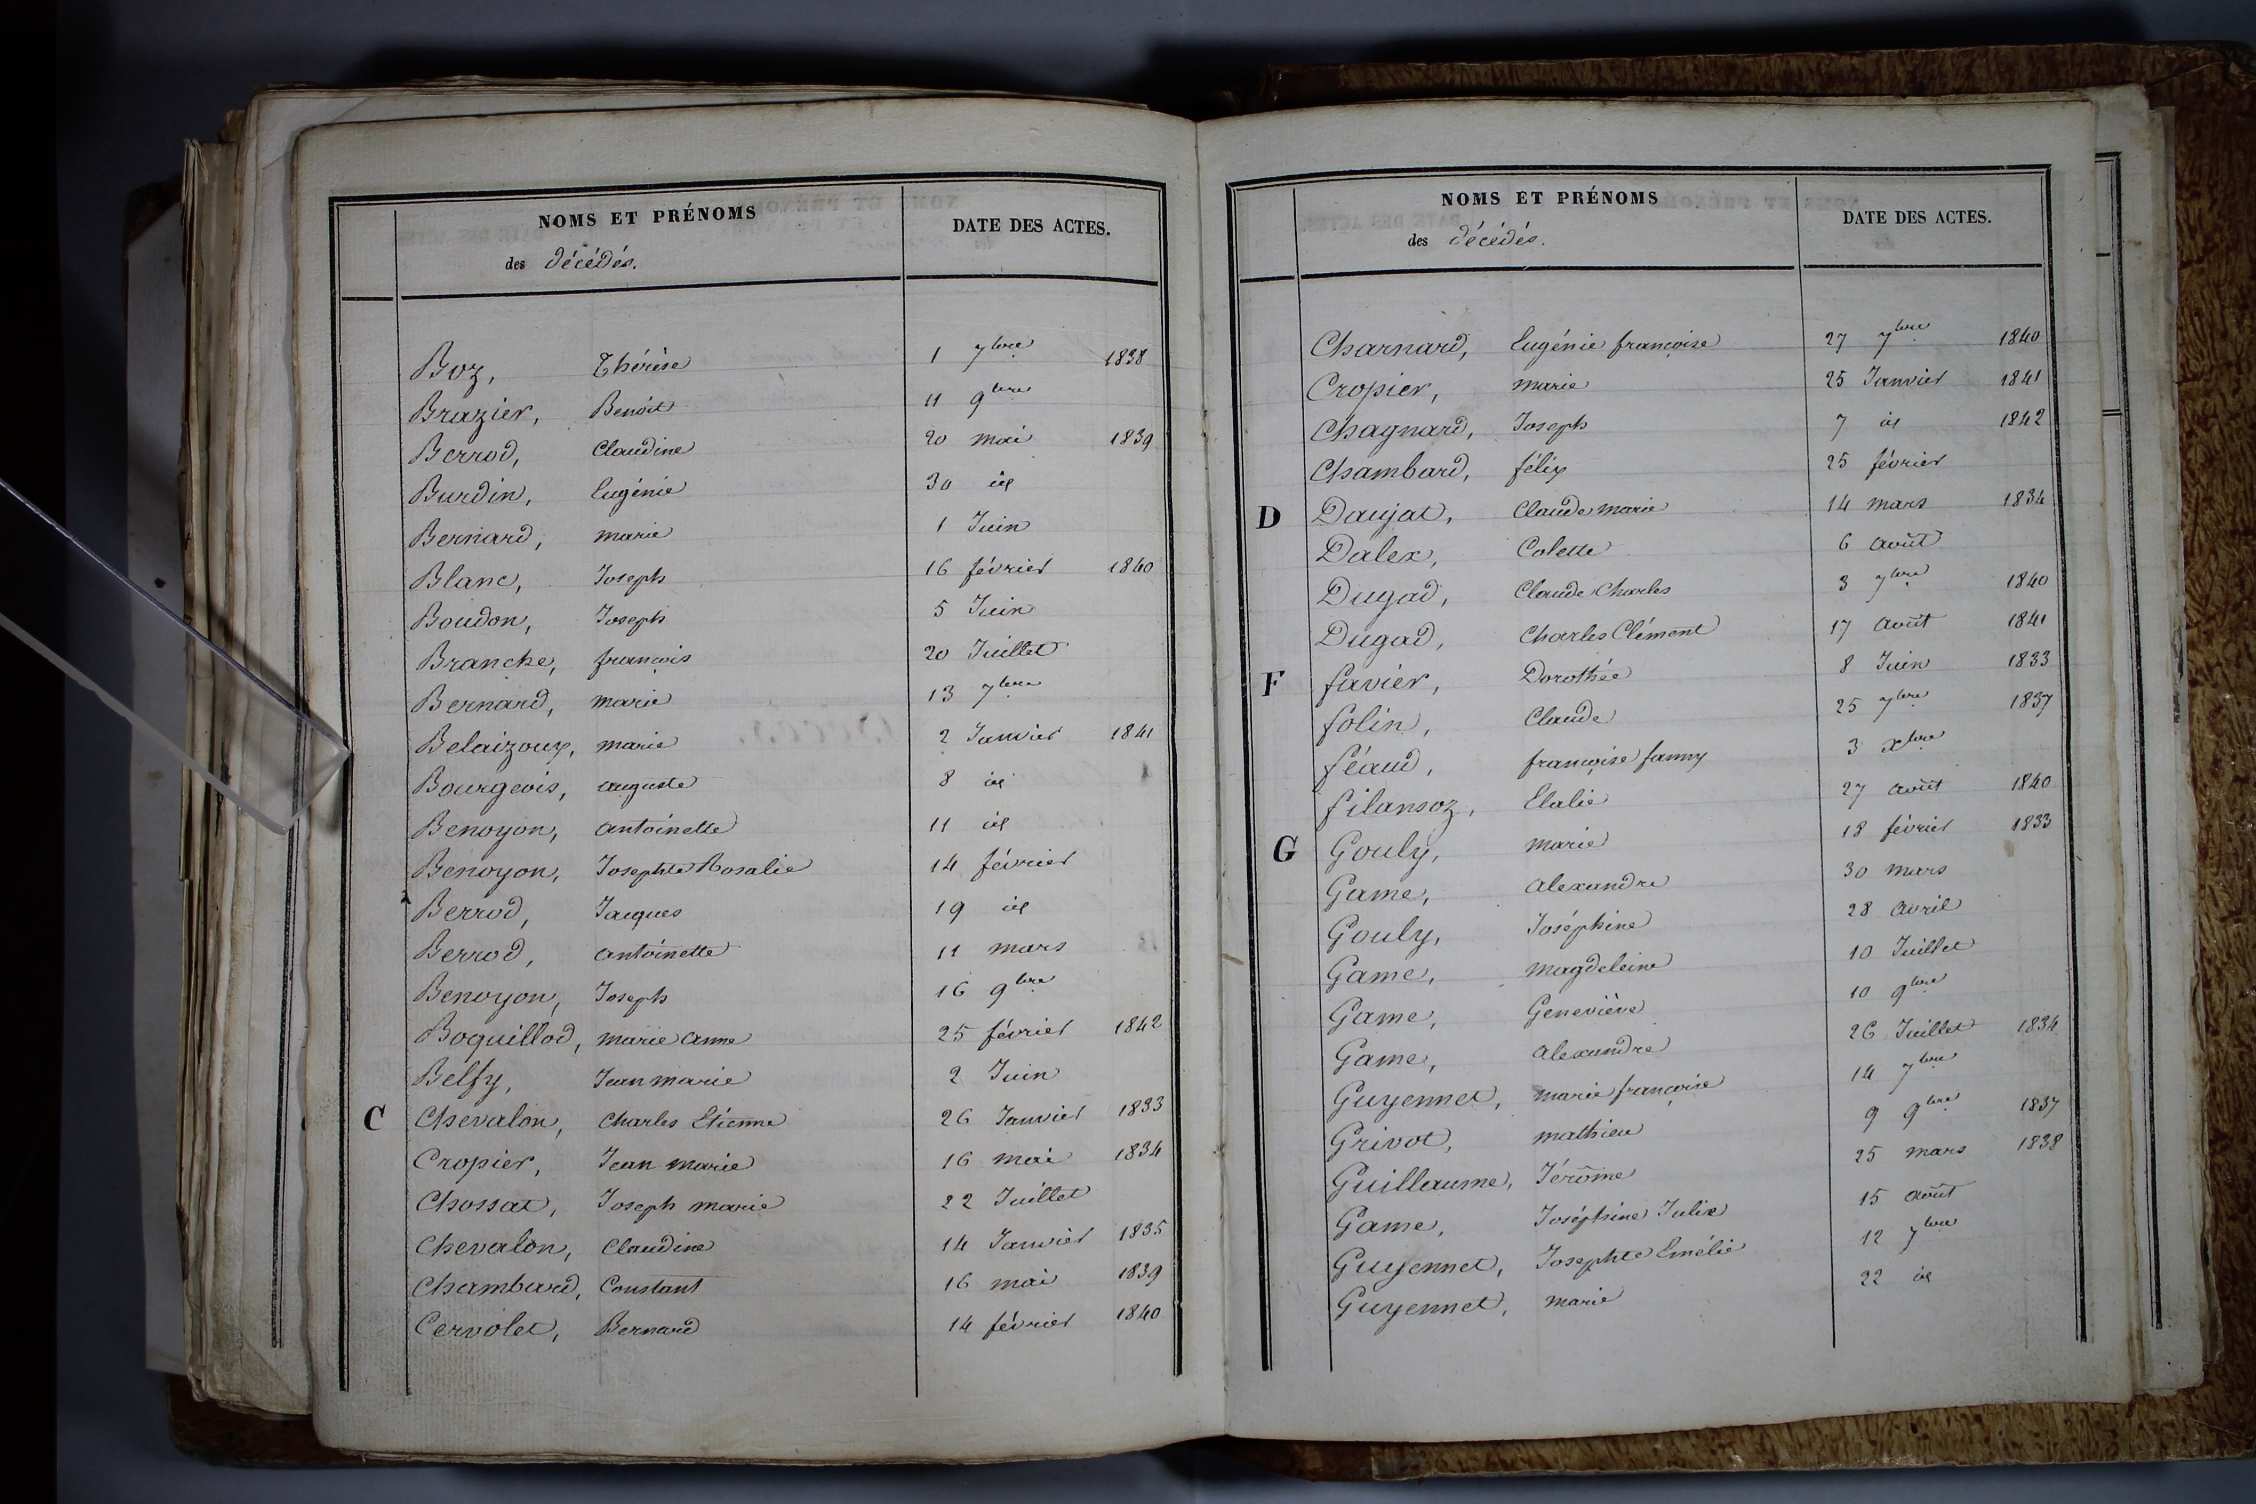 NOMS ET PRÉNOMS
DATE DES ACTES.
des décédés.
Boz, Thérèse 1 7bre 1838
Brazier, Benoit 11 9bre
Berrod, Claudine 20 mai 1839
Burdin, Eugénie 30 id
Bernard, marie 1 Juin
Blanc, Joseph 16 février 1840
Boudon, Joseph 5 Juin
Branche, françois 20 Juillet
Bernard, marie 13 7bre
Belaizoux, marie 2 Janvier 1841
Bourgeois, auguste 8 id
Benoyon, antoinette 11 id
Benoyon, Josephte Rosalie 14 février
Berrod, Jacques 19 id
Berrod, antoinette 11 mars
Benoyon, Joseph 16 9bre
Boquillod, marie anne 25 février 1842
Belfy, Jean marie 2 Juin
C Chevalon, Charles Etienne 26 Janvier 1833
Cropier, Jean marie 16 mai 1834
Chossat, Joseph marie 22 Juillet
Chevalon, Claudine 14 Janvier 1835
Chambard, Constant 16 mai 1839
Cervolet, Bernard 14 février 1840
NOMS ET PRÉNOMS
DATE DES ACTES.
des décédés.
Charnard, Eugénie françoise 27 7bre 1840
Cropier, marie 25 Janvier 1841
Chagnard, Joseph 7 id 1842
Chambard, félix 25 février
D Daujat, Claude marie 14 mars 1834
Dalex, Colette 6 août
Dugad, Claude Charles 3 7bre 1840
Dugad, Charles Clément 17 août 1841
F favier, Dorothée 8 Juin 1833
folin, Claude 25 7bre 1837
féaud, françoise fanny 3 xbre
filansoz, Elalie 27 août 1840
G Gouly, marie 18 février 1833
Game, alexandre 30 mars
Gouly, Joséphine 28 avril
Game, magdeleine 10 Juillet
Game, Geneviève 10 9bre
Game, alexandre 26 Juillet 1834
Guyennet, marie françoise 14 7bre
Grivot, mathieu 9 9bre 1837
Guillaume, Jérôme 25 mars 1838
Game, Joséphine Julie 15 août
Guyennet, Josephte Emélie 12 7bre
Guyennet, marie 22 id